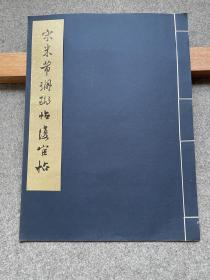 宋米芾珊瑚帖復官帖